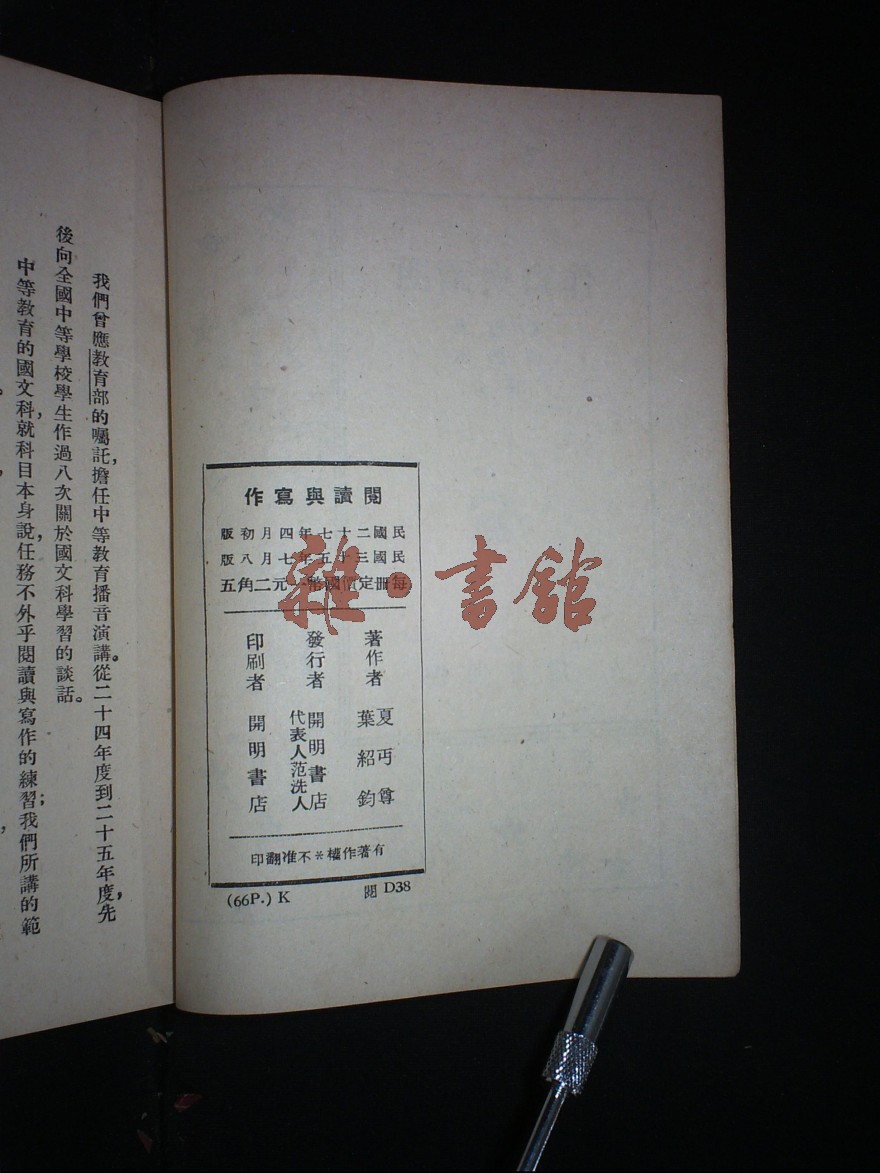 閱讀與寫作
民國二十七年四月初版
民國三十五年七月八版
每冊定價國幣一元二角五
著作者 夏丏尊
葉紹鈞
發行者 開明書店
代表人范洗人
印刷者 開明書店
有著作權＊不准翻印
(66P.) K 閱 D38
雜·書館
我們曾應教育部的囑託，擔任中等教育播音演講。從二十四年度到二十五年度，先
後向全國中等學校學生作過八次關於國文科學習的談話。
中等教育的國文科，就科目本身說，任務不外乎閱讀與寫作的練習；我們所講的範